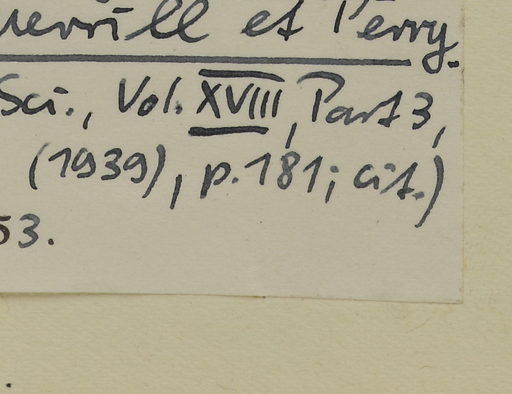 Merrill et Perry.
Sci., Vol. XVIII, Part 3,
(1939), p. 181; cit.)
53.